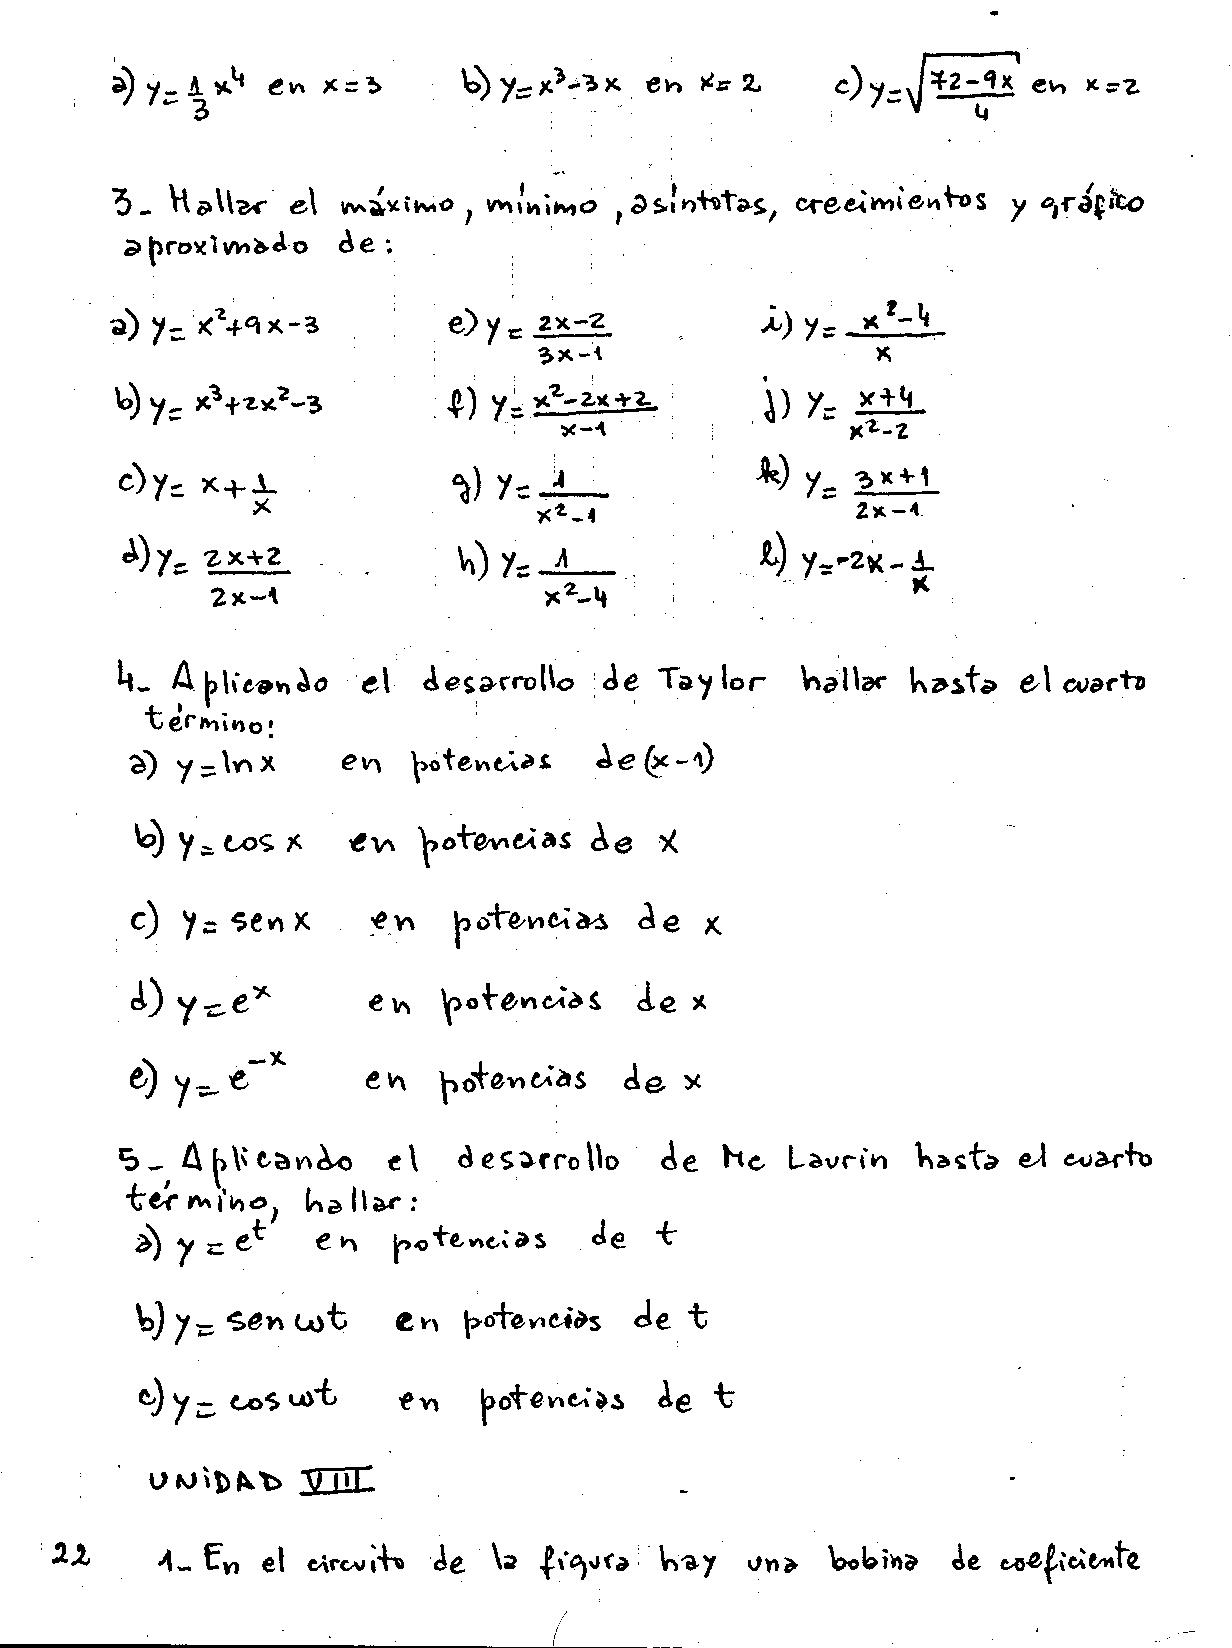 a) y = 1/3 x⁴ en x = 3 b) y = x³-3x en x = 2 c) y = √((72-9x)/4) en x = 2
3- Hallar el máximo, mínimo, asíntotas, crecimientos y gráfico
aproximado de:
a) y = x²+9x-3 e) y = (2x-2)/(3x-1) i) y = (x²-4)/x
b) y = x³+2x²-3 f) y = (x²-2x+2)/(x-1) j) y = (x+4)/(x²-2)
c) y = x + 1/x g) y = 1/(x²-1) k) y = (3x+1)/(2x-1)
d) y = (2x+2)/(2x-1) h) y = 1/(x²-4) l) y = -2x - 1/x
4- Aplicando el desarrollo de Taylor hallar hasta el cuarto
término:
a) y = ln x en potencias de (x-1)
b) y = cos x en potencias de x
c) y = sen x en potencias de x
d) y = eˣ en potencias de x
e) y = e⁻ˣ en potencias de x
5- Aplicando el desarrollo de Mc Laurin hasta el cuarto
término, hallar:
a) y = eᵗ en potencias de t
b) y = sen ωt en potencias de t
c) y = cos ωt en potencias de t
UNiDAD VIII
22 1- En el circuito de la figura hay una bobina de coeficiente